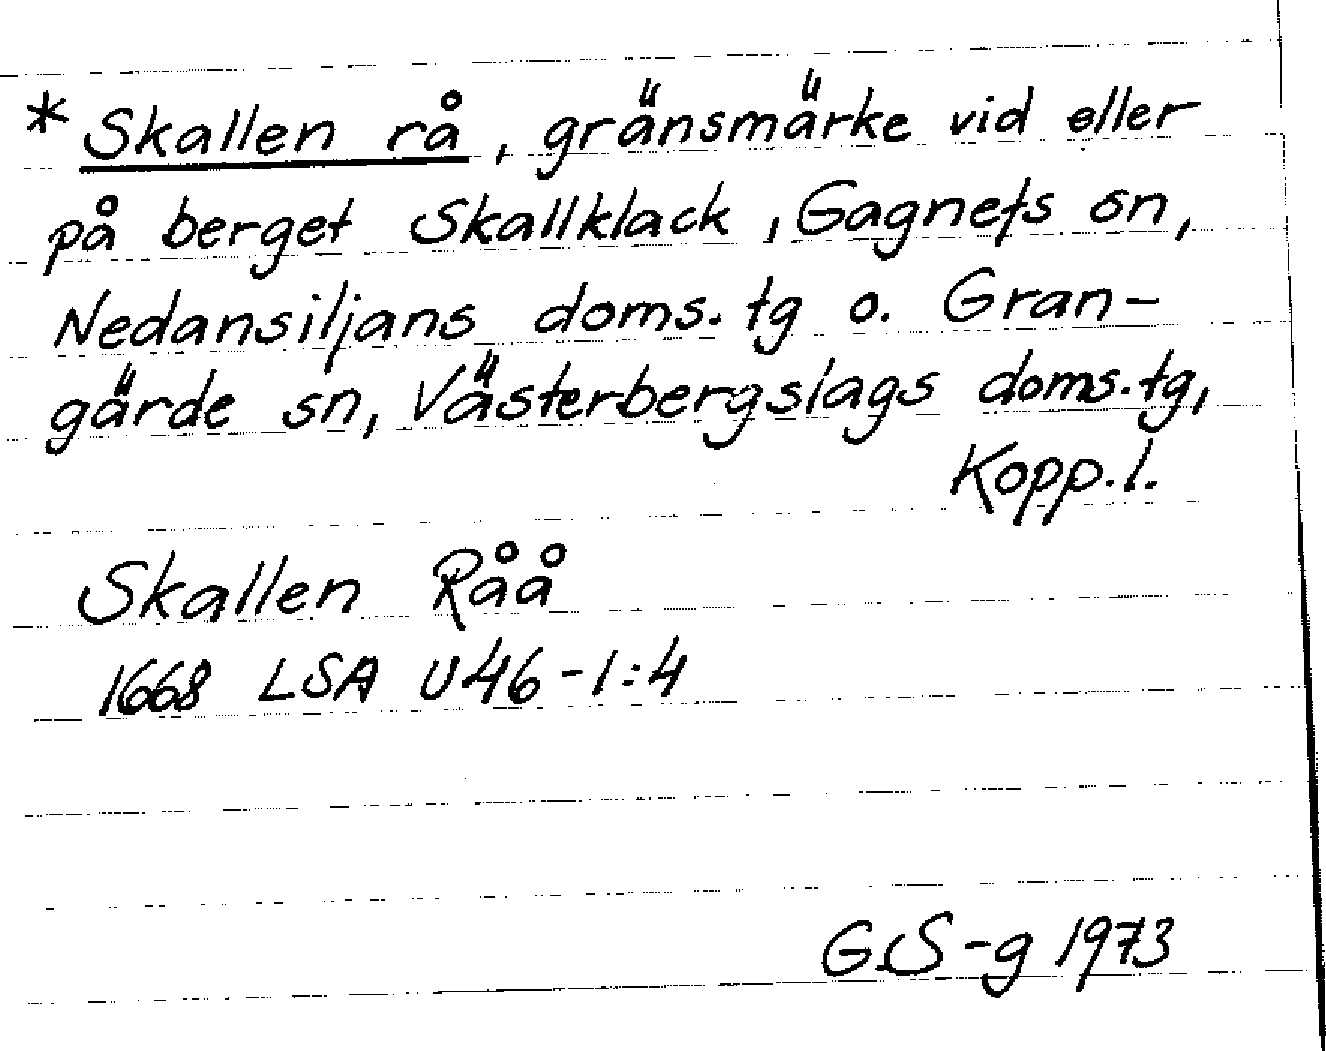 * Skallen rå, gränsmärke vid eller
på berget Skallklack, Gagnefs sn,
Nedansiljans doms. tg o. Gran-
gärde sn, Västerbergslags doms. tg,
Kopp. l.
Skallen Råå
1668 LSA U46-1:4
G.S-g 1973